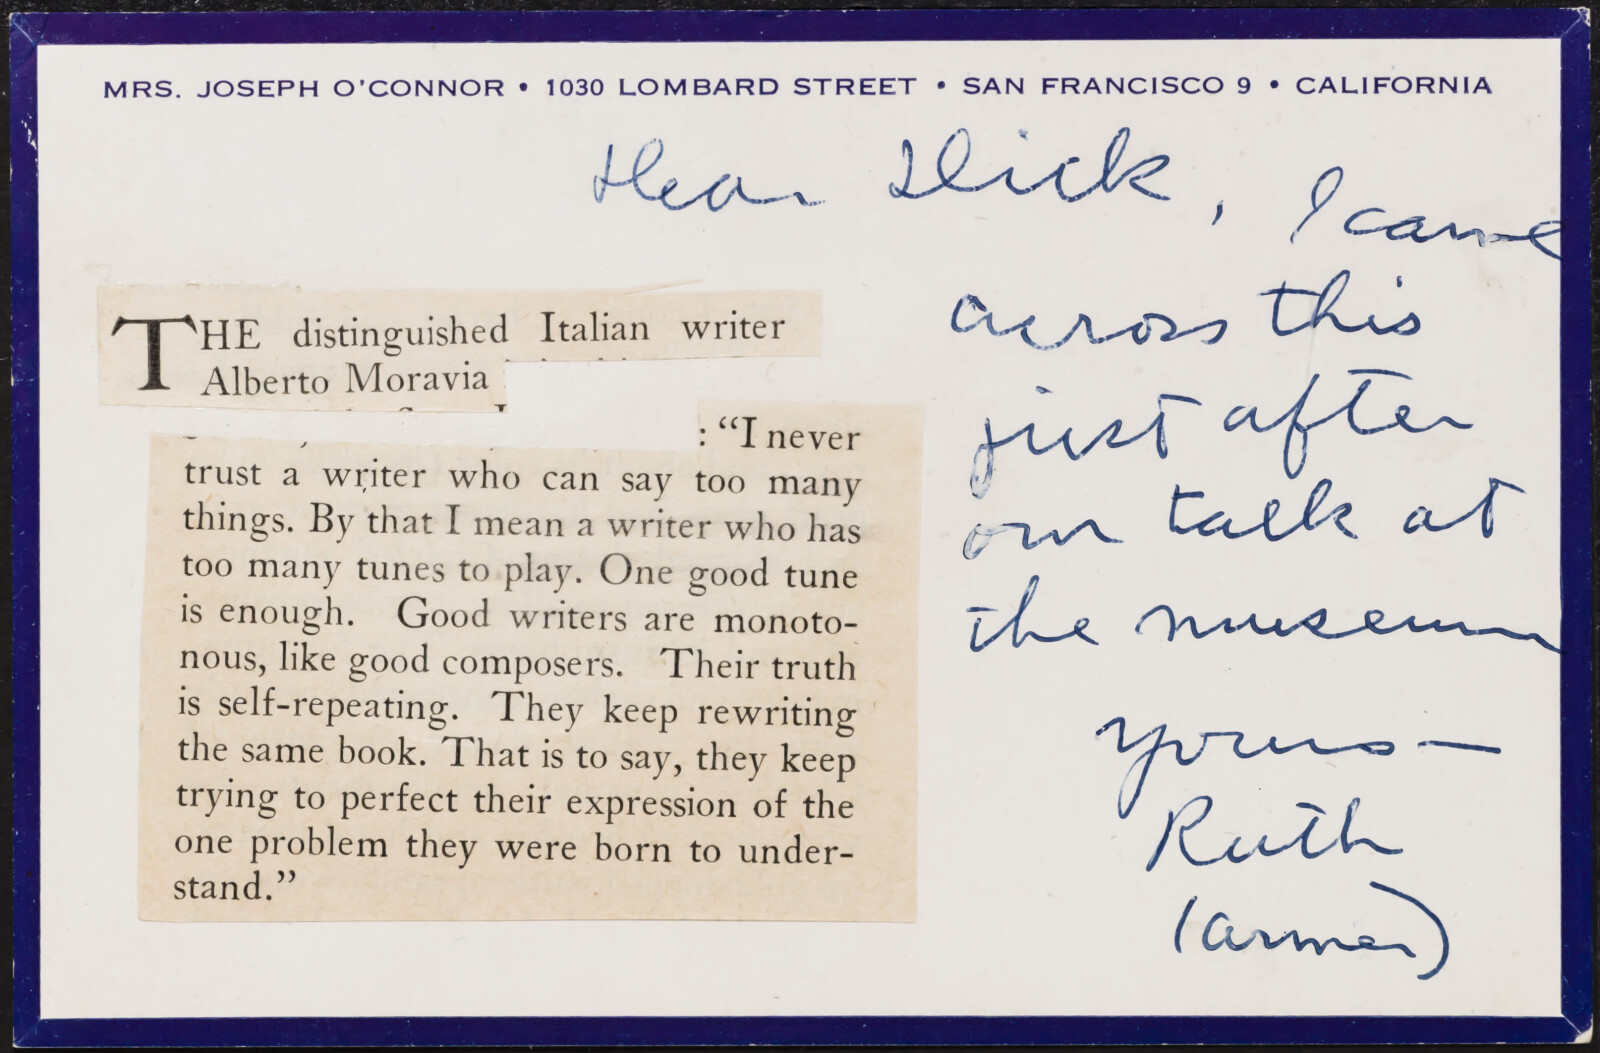 MRS. JOSEPH O'CONNOR • 1030 LOMBARD STREET • SAN FRANCISCO 9 • CALIFORNIA
Dear Dick, I came
across this
just after
our talk at
the museum
yours—
Ruth
(Armer)
THE distinguished Italian writer
Alberto Moravia
: “I never
trust a writer who can say too many
things. By that I mean a writer who has
too many tunes to play. One good tune
is enough. Good writers are monoto-
nous, like good composers. Their truth
is self-repeating. They keep rewriting
the same book. That is to say, they keep
trying to perfect their expression of the
one problem they were born to under-
stand.”